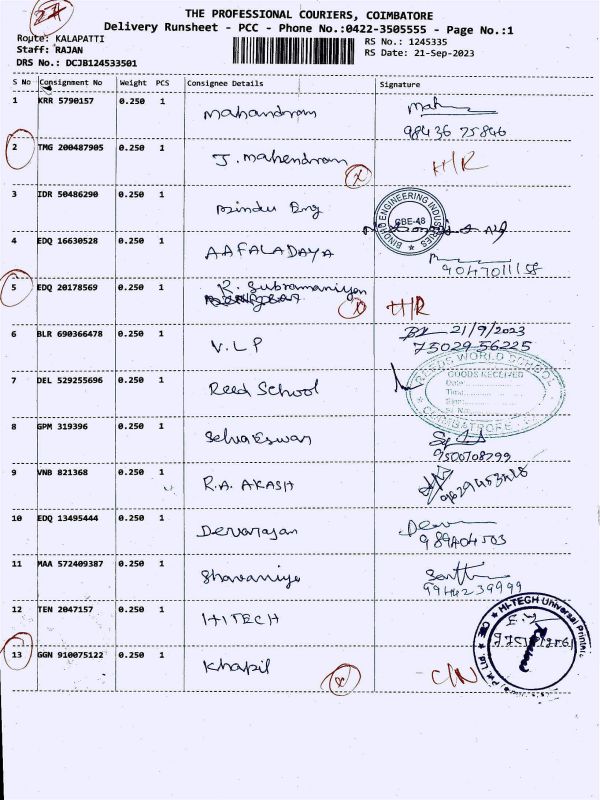 27
THE PROFESSIONAL COURIERS, COIMBATORE
Delivery Runsheet - PCC - Phone No.:0422-3505555 - Page No.:1
Route: KALAPATTI
RS No.: 1245335
Staff: RAJAN
RS Date: 21-Sep-2023
DRS No.: DCJB124533501
S No Consignment No Weight PCS Consignee Details Signature
1 KRR 5790157 0.250 1 Mahandram Mah
98436 75846
2 TMG 200487905 0.250 1 J. Mahendram x H/R
3 IDR 50486290 0.250 1 Bindu Eng BINDHU ENGINEERING INDUSTRIES CBE-48
4 EDQ 16630528 0.250 1 AAFALADAYA
9047011158
5 EDQ 20178569 0.250 1 R. Subramaniyan x H/R
6 BLR 690366478 0.250 1 V.L.P 21/9/2023
75029 56225
7 DEL 529255696 0.250 1 Reed School REEDS WORLD SCHOOL
GOODS RECEIVED
Date
Time
Sign
COIMBATORE
8 GPM 319396 0.250 1 Selva Eswar
9500708299
9 VNB 821368 0.250 1 R.A. AKASH
10 EDQ 13495444 0.250 1 Devarajan Dev
11 MAA 572409387 0.250 1 Sharaniya
9942239999
12 TEN 2047157 0.250 1 HITECH HI-TECH Universal Printic Pvt Ltd CBE
13 GGN 910075122 0.250 1 Khapil x C/N